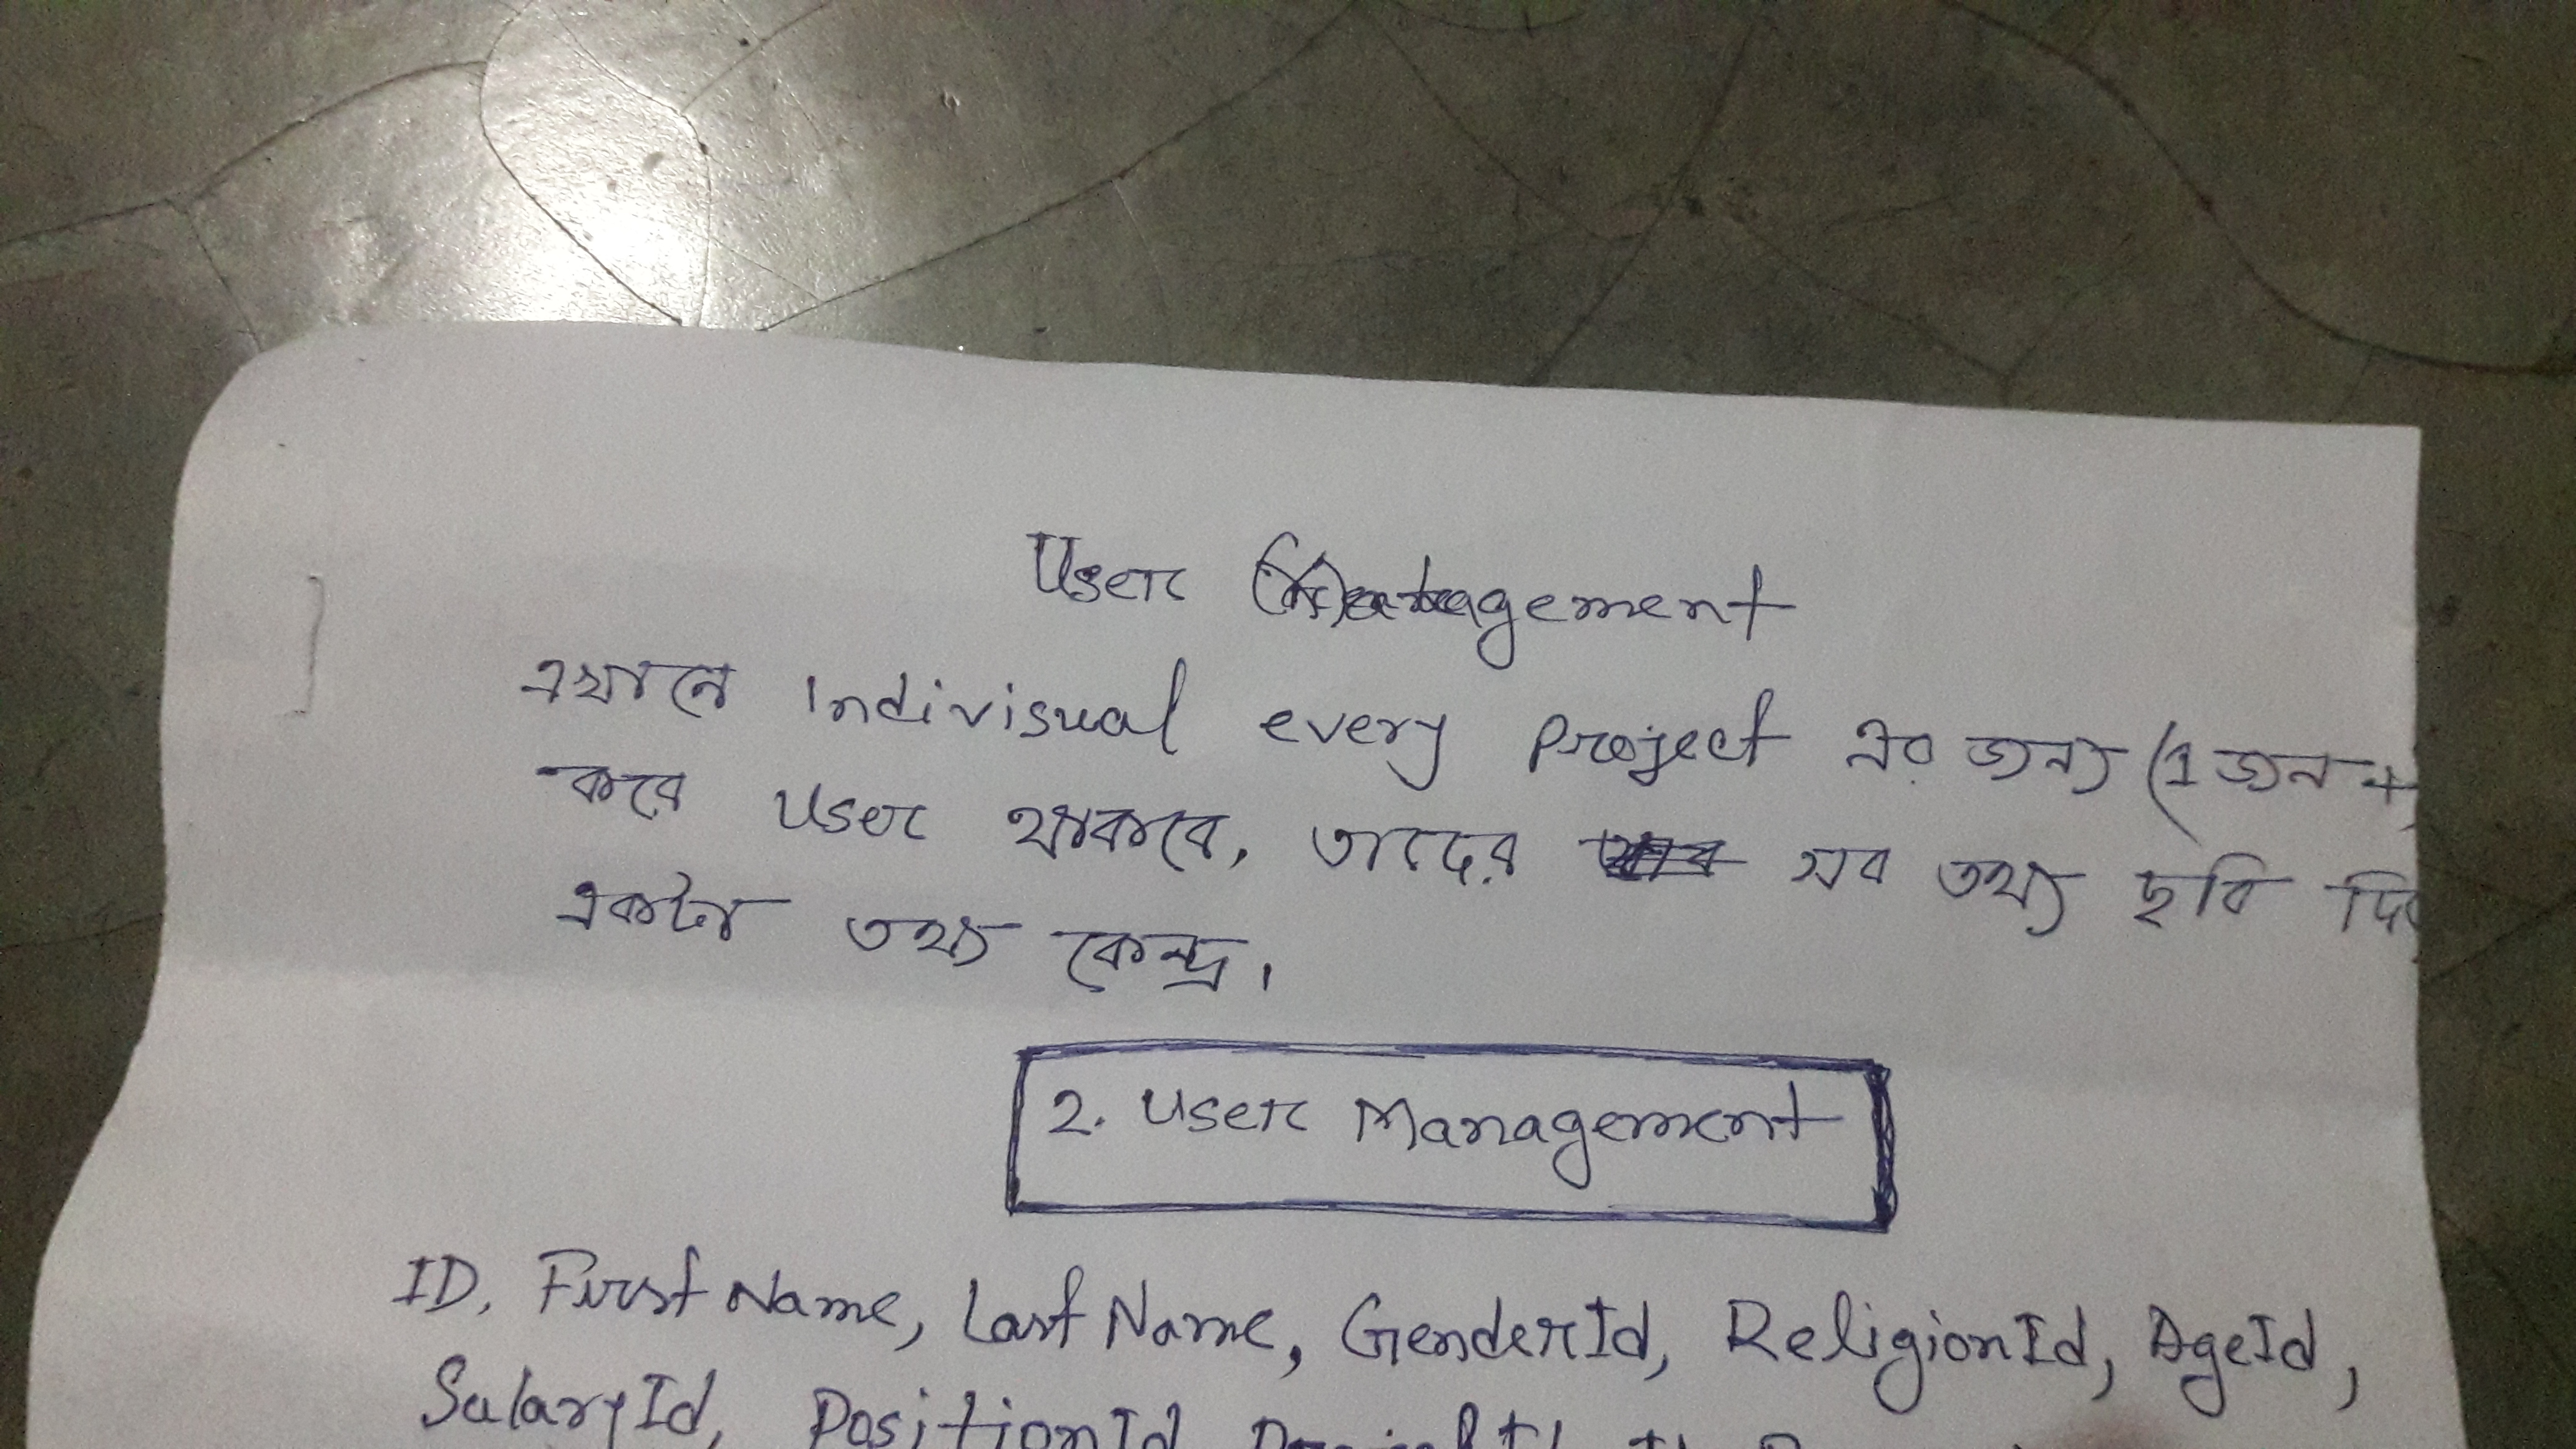 User Management
এখানে indivisual every project এর জন্য (1 জন +
করে user থাকবে, তাদের সব তথ্য ছবি
একটা তথ্য কেন্দ্র।
2. User Management
ID, First Name, Last Name, GenderId, ReligionId, AgeId,
SalaryId, PositionId